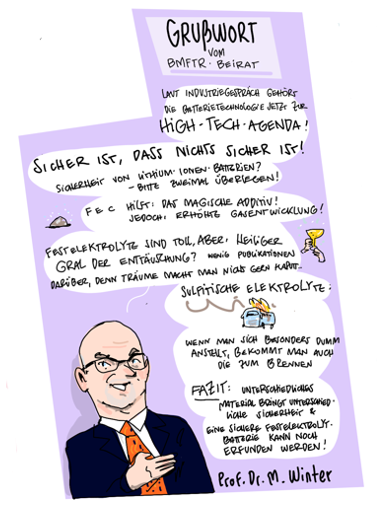 GRUẞWORT
VOM
BMFTR-BEIRAT
LAUT INDUSTRIEGESPRÄCH GEHÖRT
DIE BATTERIETECHNOLOGIE JETZT ZUR
HIGH-TECH-AGENDA!
SICHER IST, DASS NICHTS SICHER IST!
SICHERHEIT VON LITHIUM-IONEN-BATTERIEN?
– BITTE ZWEIMAL ÜBERLEGEN!
FEC HILFT: DAS MAGISCHE ADDITIV!
JEDOCH, ERHÖHTE GASENTWICKLUNG!
FESTELEKTROLYTE SIND TOLL, ABER, HEILIGER
GRAL DER ENTTÄUSCHUNG? WENIG PUBLIKATIONEN
DARÜBER, DENN TRÄUME MACHT MAN NICHT GERN KAPUTT..
SULFITISCHE ELEKTROLYTE:
WENN MAN SICH BESONDERS DUMM
ANSTELLT, BEKOMMT MAN AUCH
DIE ZUM BRENNEN
FAZIT: UNTERSCHIEDLICHES
MATERIAL BRINGT UNTERSCHIED-
LICHE SICHERHEIT &
EINE SICHERE FESTELEKTROLYT-
BATTERIE KANN NOCH
ERFUNDEN WERDEN!
Prof. Dr. M. Winter